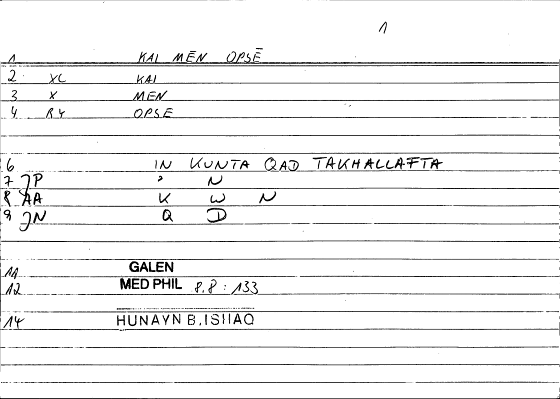 1
1 KAI MĒN OPSĒ
2 XC KAI
3 X MEN
4 RY OPSE
6 IN KUNTA QAD TAKHALLAFTA
7 JP ' N
8 AA K W N
9 JN Q D
11 GALEN
12 MED PHIL 8.8 : 133
14 HUNAYN B. ISHAQ